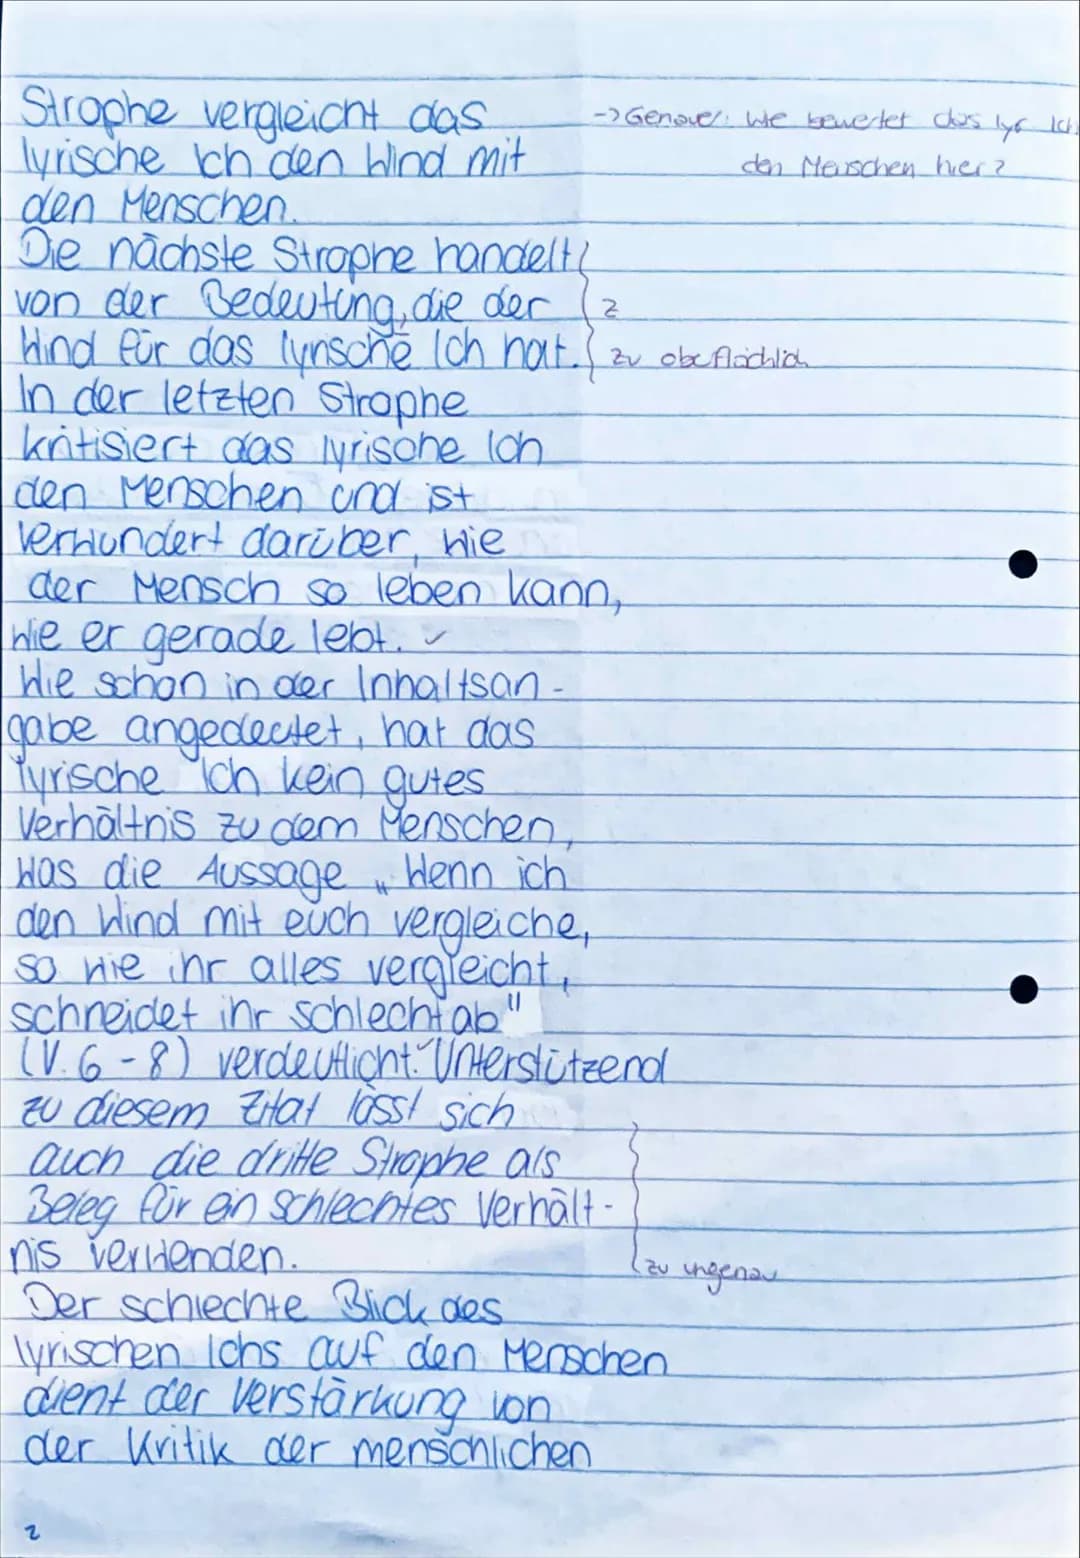 Strophe vergleicht das
-> Genauer: Wie bewertet das lyr Ich
lyrische Ich den Wind mit
den Menschen hier?
den Menschen.
Die nächste Strophe handelt
von der Bedeutung, die der
Z
Wind für das lyrische Ich hat.
zu oberflächlich
In der letzten Strophe
kritisiert das lyrische Ich
den Menschen und ist
verwundert darüber, wie
der Mensch so leben kann,
wie er gerade lebt. ✓
Wie schon in der Inhaltsan-
gabe angedeutet, hat das
lyrische Ich kein gutes
Verhältnis zu dem Menschen,
was die Aussage „Wenn ich
den Wind mit euch vergleiche,
so wie ihr alles vergleicht,
schneidet ihr schlecht ab"
(V. 6-8) verdeutlicht. Unterstützend
zu diesem Zitat lässt sich
auch die dritte Strophe als
Beleg für ein schlechtes Verhält-
nis verwenden.
zu ungenau
Der schlechte Blick des
lyrischen Ichs auf den Menschen
dient der Verstärkung von
der Kritik der menschlichen
2